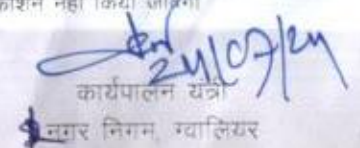 नहीं किया जावेगा
24/07/24
कार्यपालन यंत्री
नगर निगम, ग्वालियर